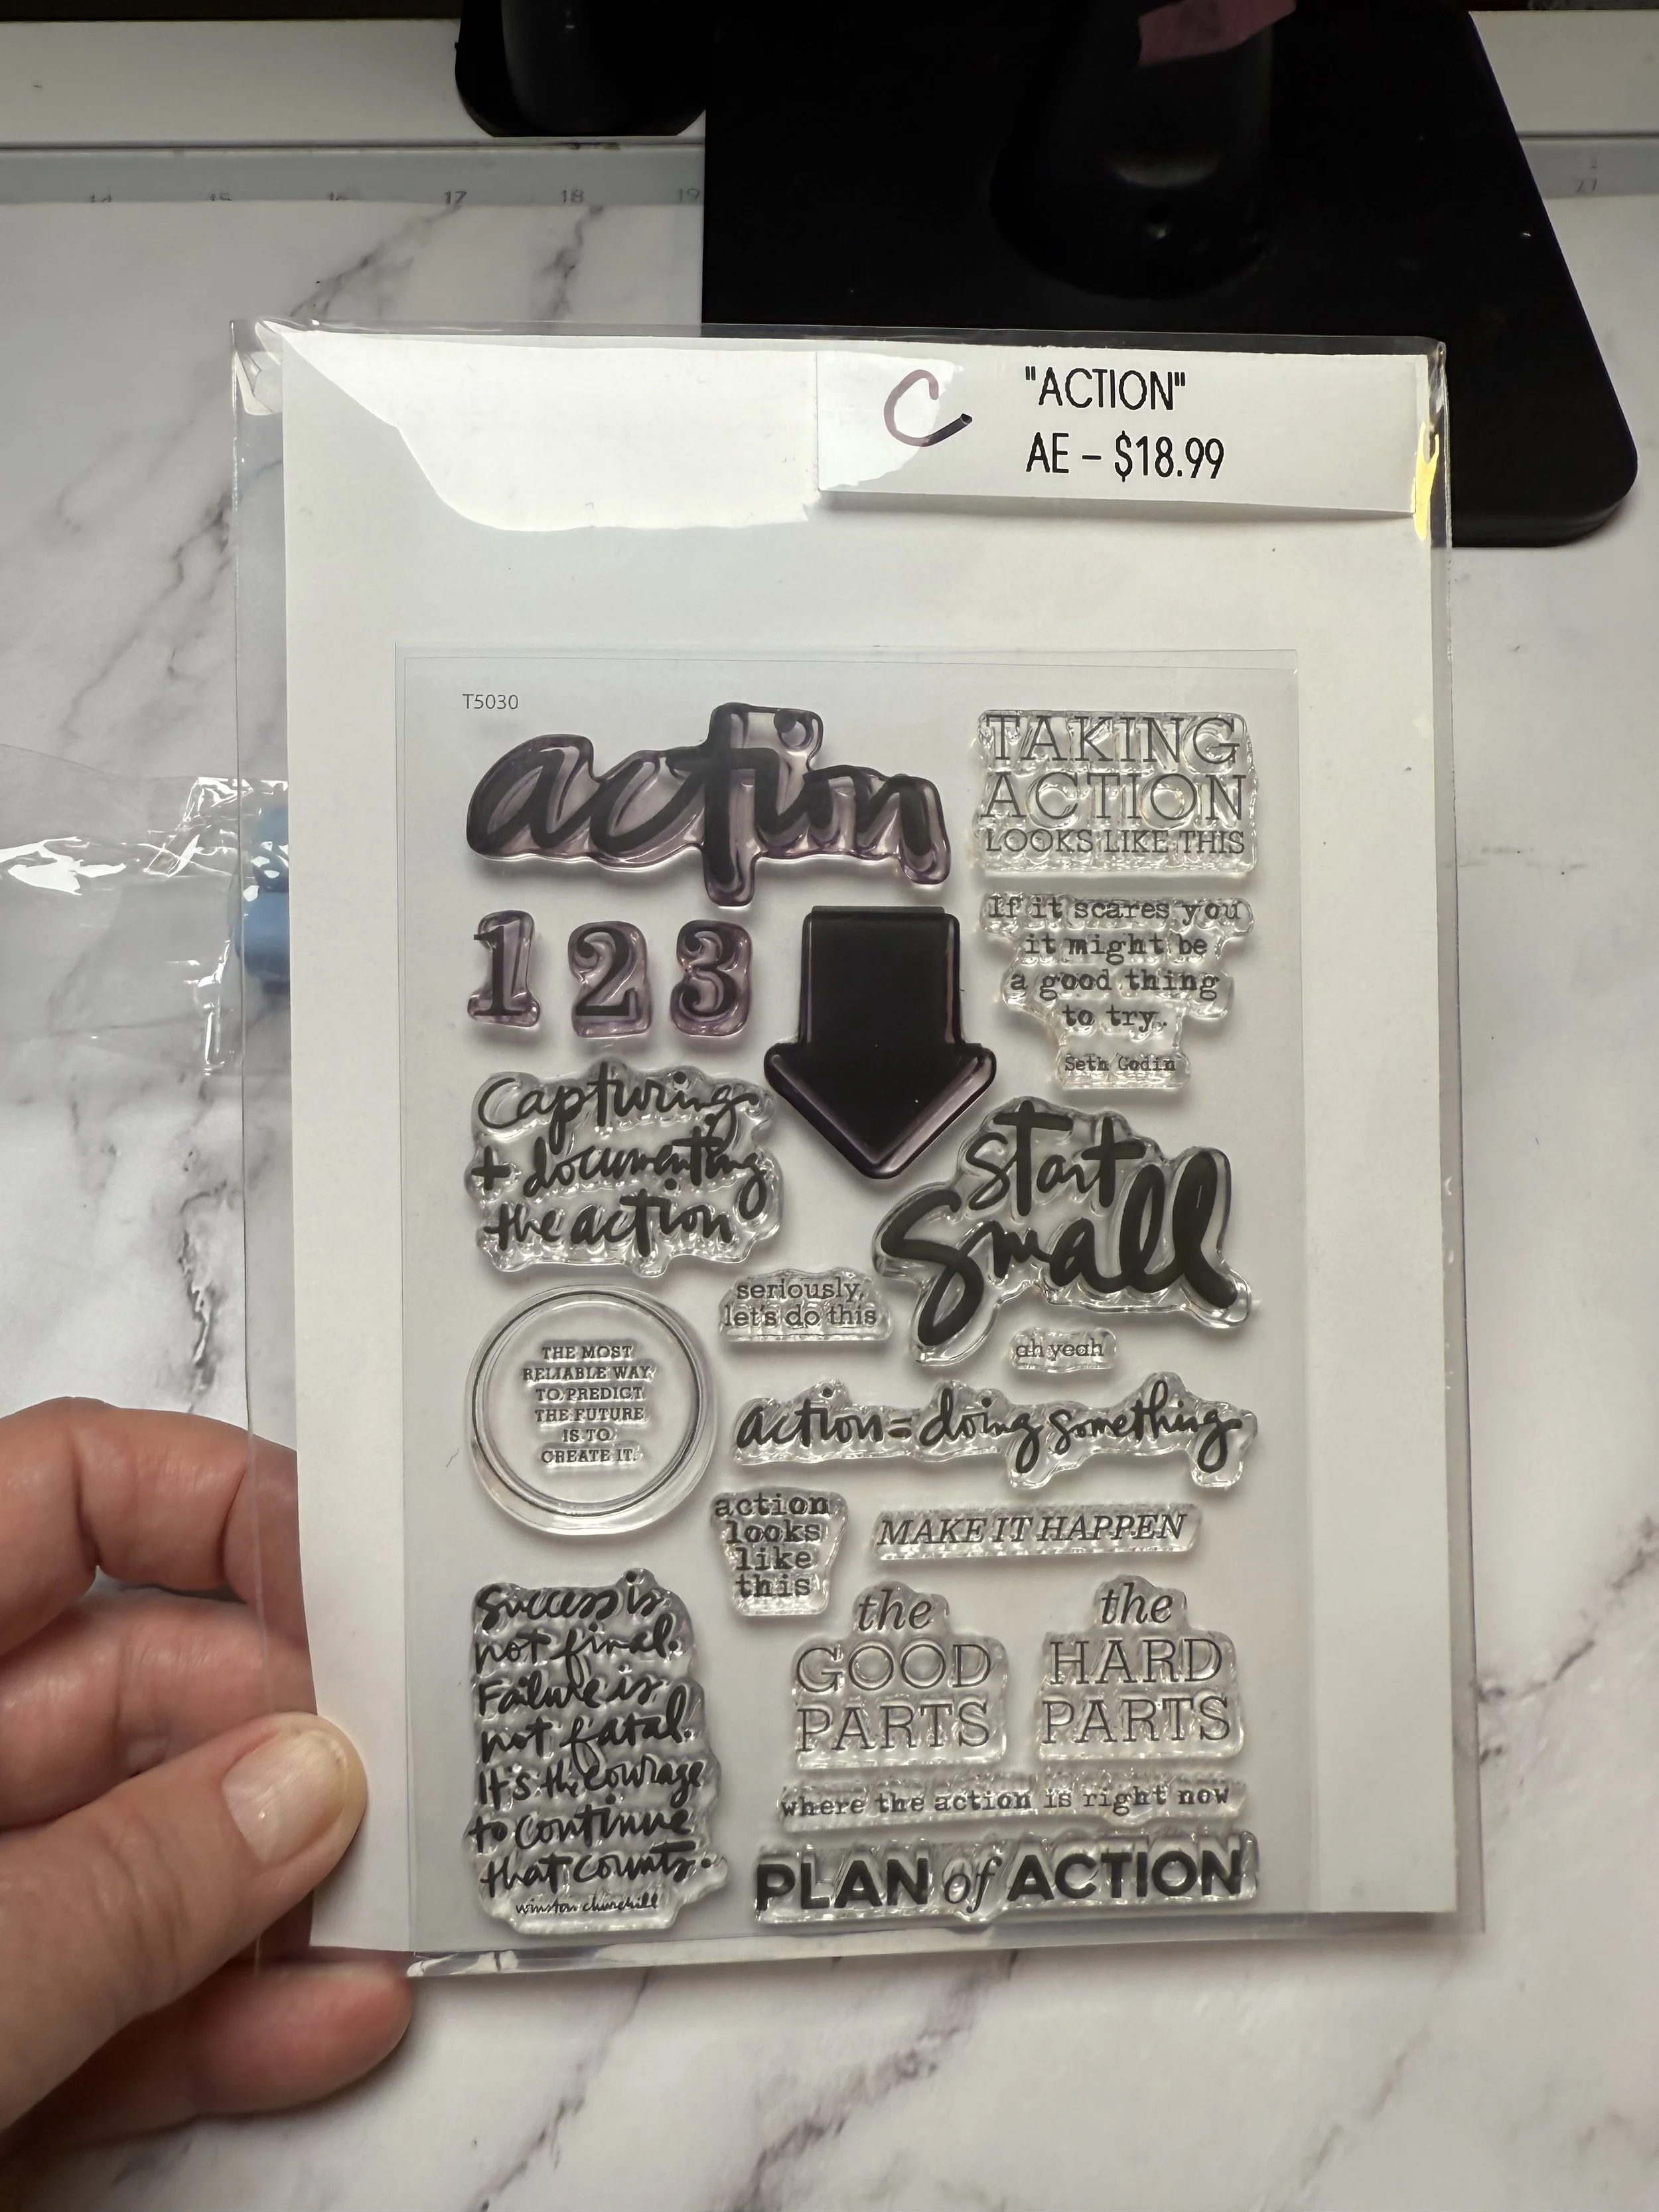 14 15 16 17 18 19
27
C
"ACTION"
AE – $18.99
T5030
action
TAKING
ACTION
LOOKS LIKE THIS
1 2 3
If it scares you
it might be
a good thing
to try.
Seth Godin
Capturing
+ documenting
the action
start
small
seriously,
let's do this
ah yeah
THE MOST
RELIABLE WAY
TO PREDICT
THE FUTURE
IS TO
CREATE IT.
action = doing something
action
looks
like
this
MAKE IT HAPPEN
Success is
not final.
Failure is
not fatal.
It's the courage
to continue
that counts.
winston churchill
the
GOOD
PARTS
the
HARD
PARTS
where the action is right now
PLAN of ACTION